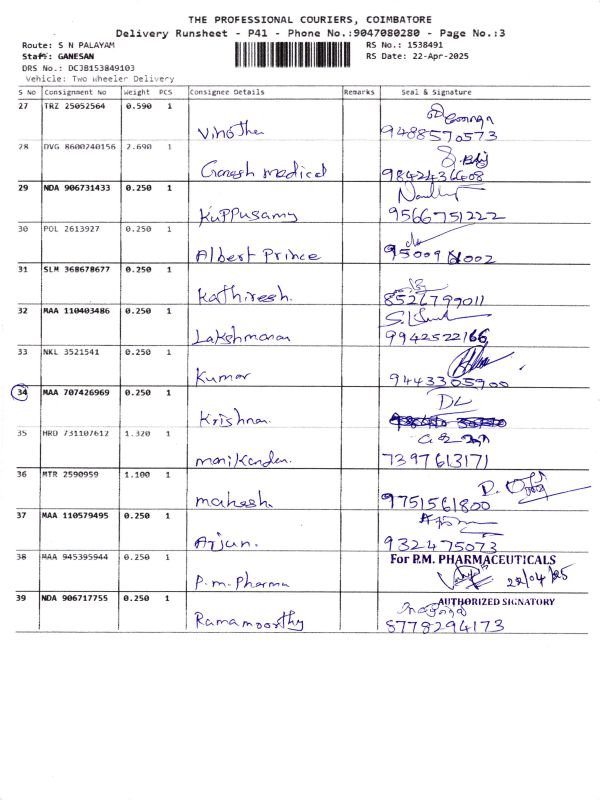 THE PROFESSIONAL COURIERS, COIMBATORE
Delivery Runsheet - P41 - Phone No.:9047080280 - Page No.:3
Route: S N PALAYAM
RS No.: 1538491
Staff: GANESAN
RS Date: 22-Apr-2025
DRS No.: DCJB153849103
Vehicle: Two Wheeler Delivery
S No Consignment No Weight PCS Consignee Details Remarks Seal & Signature
27 TRZ 25052564 0.590 1
Vinotha 9488570573
28 DVG 8600240156 2.690 1
Ganesh medical 9842436608
29 NDA 906731433 0.250 1
Kuppusamy 9566751222
30 POL 2613927 0.250 1
Albert Prince
31 SLM 368678677 0.250 1
Kathiresh. 8526799011
32 MAA 110403486 0.250 1
Lakshmanan 9942522166
33 NKL 3521541 0.250 1
Kumar 9443305900
34 MAA 707426969 0.250 1 DL
Krishnan
35 HRO 731107612 1.320 1
manikandan. 7397613171
36 MTR 2590959 1.100 1
mahesh. 9751561800
37 MAA 110579495 0.250 1
Arjun. 932475073
38 MAA 945395944 0.250 1 For P.M. PHARMACEUTICALS
P.m. Pharma 22/04/25
39 NDA 906717755 0.250 1 AUTHORIZED SIGNATORY
Ramamoorthy 8778294173